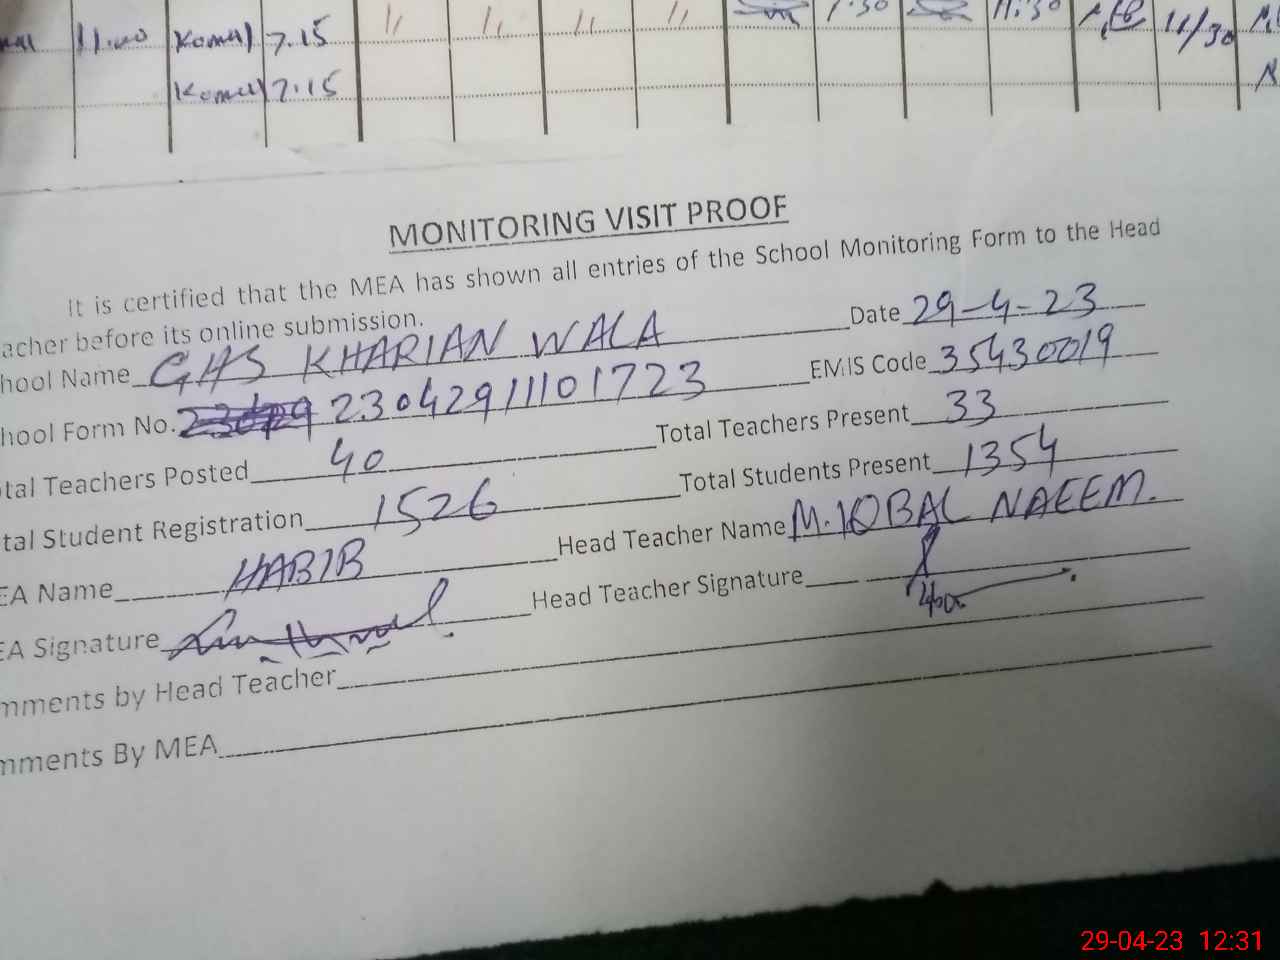 11.00 Komal 7.15 11 11 11 11 1.30 11:30 11/30 M.
Komal 7.15
MONITORING VISIT PROOF
It is certified that the MEA has shown all entries of the School Monitoring Form to the Head
acher before its online submission.
hool Name GHS KHARIAN WALA Date 29-4-23
hool Form No. 23042911101723 EMIS Code 35430019
tal Teachers Posted 40 Total Teachers Present 33
tal Student Registration 1526 Total Students Present 1354
EA Name HABIB Head Teacher Name M.IQBAL NAEEM.
EA Signature Head Teacher Signature
mments by Head Teacher
mments By MEA
29-04-23 12:31